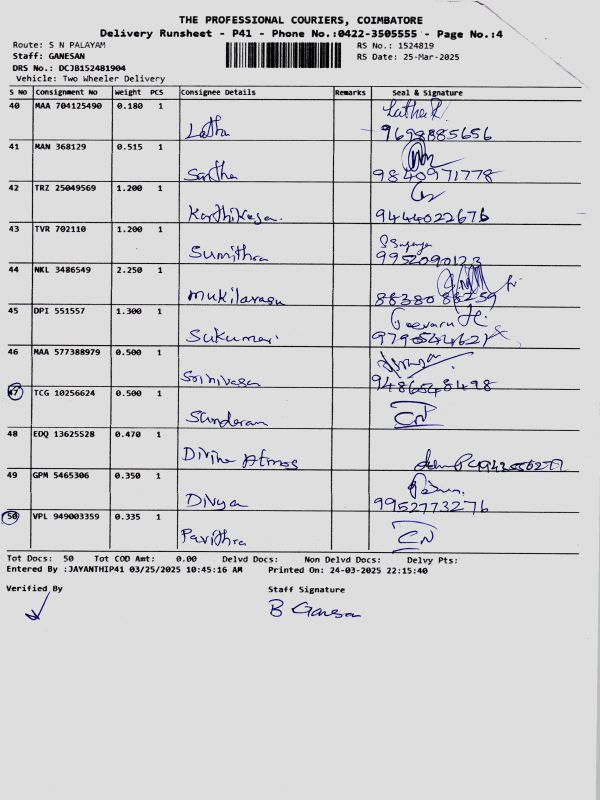 THE PROFESSIONAL COURIERS, COIMBATORE
Delivery Runsheet - P41 - Phone No.:0422-3505555 - Page No.:4
Route: S N PALAYAM RS No.: 1524819
Staff: GANESAN RS Date: 25-Mar-2025
DRS No.: DCJB152481904
Vehicle: Two Wheeler Delivery
S No Consignment No Weight PCS Consignee Details Remarks Seal & Signature
40 MAA 704125490 0.180 1 Latha Latha R
9698885656
41 MAN 368129 0.515 1 Santha
9840971778
42 TRZ 25049569 1.200 1 Karthikeyan.
9444022676
43 TVR 702110 1.200 1 Sumithra
9952090123
44 NKL 3486549 2.250 1 Mukilarasu
45 DPI 551557 1.300 1 Sukumari
46 MAA 577388979 0.500 1 Srinivasan
9486548498
47 TCG 10256624 0.500 1 Sundaram CN
48 EDQ 13625528 0.470 1 Divine Atmos
49 GPM 5465306 0.350 1 Divya
9952773276
50 VPL 949003359 0.335 1 Pavithra CN
Tot Docs: 50 Tot COD Amt: 0.00 Delvd Docs: Non Delvd Docs: Delvy Pts:
Entered By :JAYANTHIP41 03/25/2025 10:45:16 AM Printed On: 24-03-2025 22:15:40
Verified By Staff Signature
B Ganesan